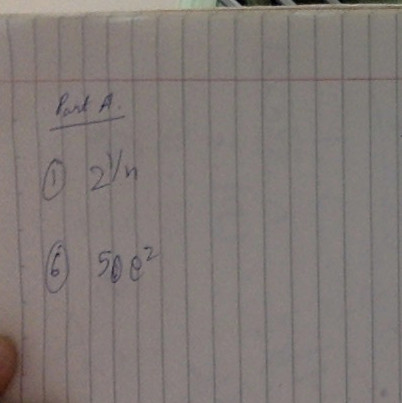 Part A.
① 2^1/n
⑥ 50 e²